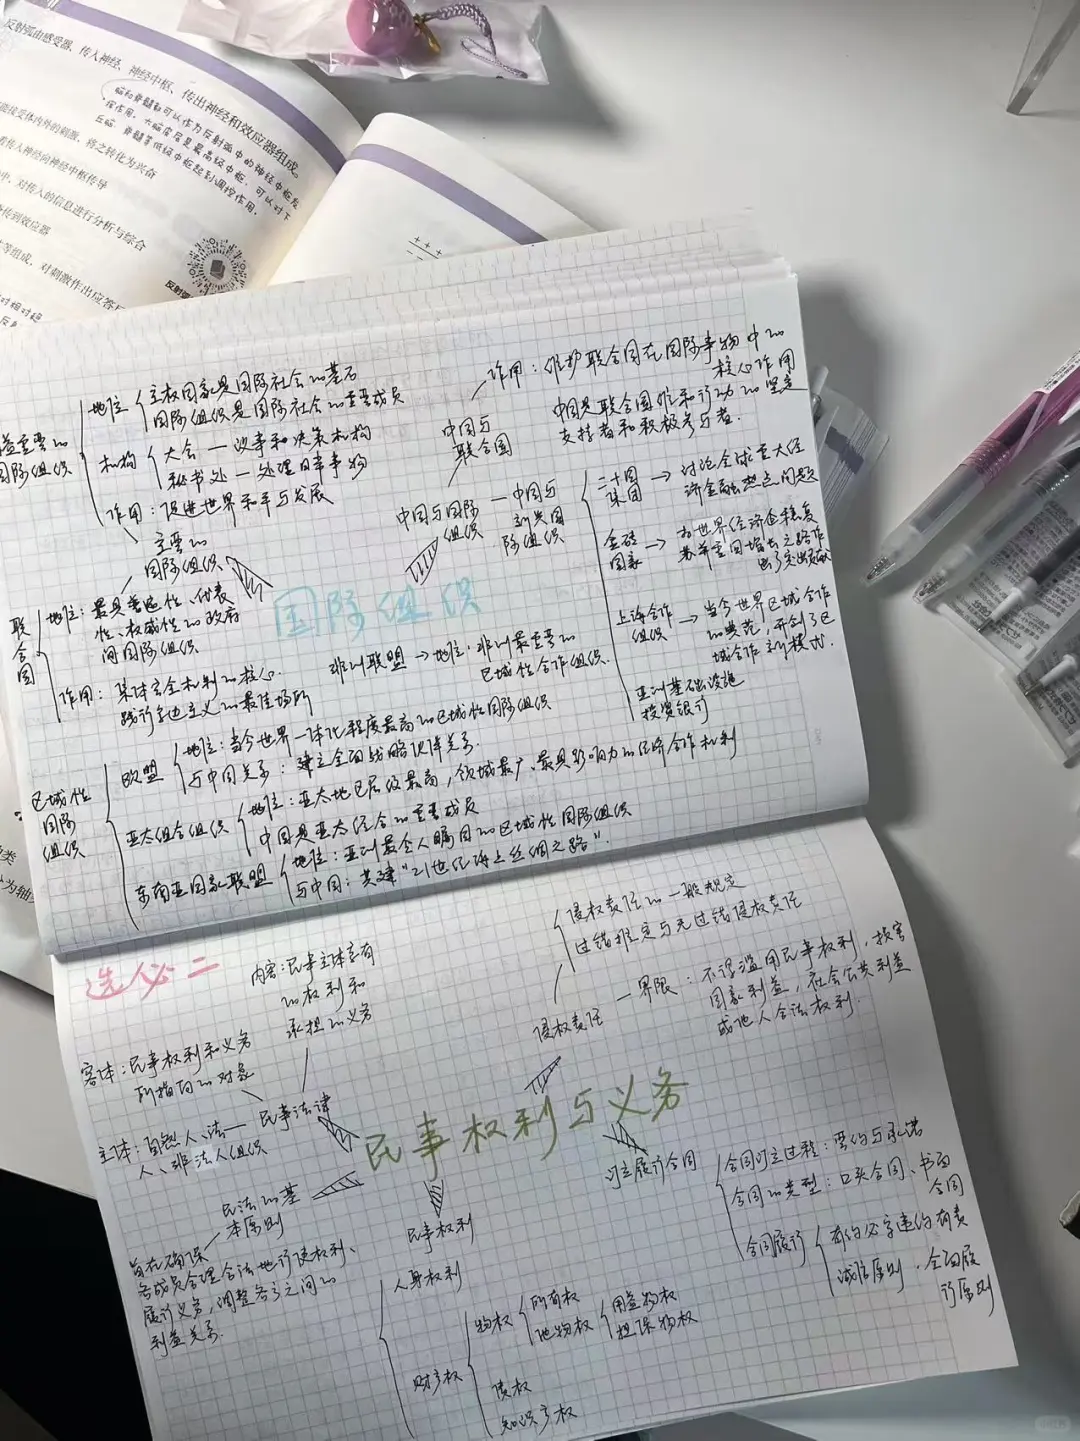 反射弧由感受器、传入神经、神经中枢、传出神经和效应器组成。
脑和脊髓都可以作为反射弧中的神经中枢发
挥作用，大脑皮层是最高级中枢，可以对下
丘脑、脊髓等低级中枢起到调控作用。
能接受体内外的刺激，将之转化为兴奋
传入神经向神经中枢传导
中，对传入的信息进行分析与综合
传到效应器
等组成，对刺激作出应答反
地位
主权国家是国际社会的基石
国际组织是国际社会的重要成员
机构
大会—议事和决策机构
秘书处—处理日常事物
作用：促进世界和平与发展
主要的
国际组织
国际组织
联合国
地位：最具普遍性、代表
性、权威性的政府
间国际组织
作用：集体安全机制的核心
践行多边主义的最佳场所
中国与国际
组织
中国与
联合国
作用：维护联合国在国际事物中的
核心作用
中国是联合国维和行动的坚定
支持者和积极参与者.
中国与
新兴国
际组织
二十国
集团
讨论全球重大经
济金融热点问题
金砖
国家
为世界经济企稳复
出了突出贡献
上海合作
组织
当今世界区域合作
的典范，开创了区
域合作新模式.
亚洲基础设施
投资银行
非洲联盟→地位：非洲最重要的
区域性合作组织.
区域性
国际
组织
欧盟
地位：当今世界一体化程度最高的区域性国际组织
与中国关系：建立全面战略伙伴关系.
亚太组合组织
地位：亚太地区层级最高，领域最广、最具影响力的经济合作机制
中国是亚太经合的重要成员
东南亚国家联盟
地位：亚洲最令人瞩目的区域性国际组织
与中国：共建“21世纪海上丝绸之路”.
选必二
民事权利与义务
内容：民事主体享有
的权利和
承担的义务
客体：民事权利和义务
所指向的对象
民事法律
主体：自然人、法
人、非法人组织
民法的基
本原则
旨在确保
各成员合理合法地行使权利、
履行义务，调整各方之间的
利益关系.
侵权责任
侵权责任的一般规定
过错推定与无过错侵权责任
界限：不得滥用民事权利，损害
国家利益，社会公共利益
或他人合法权利.
订立履行合同
合同订立过程：要约与承诺
合同的类型：口头合同、书面
合同
合同履行
有约必守违约有责
诚信原则，全面履
行原则
民事权利
人身权利
财产权
物权
所有权
他物权
用益物权
担保物权
债权
知识产权